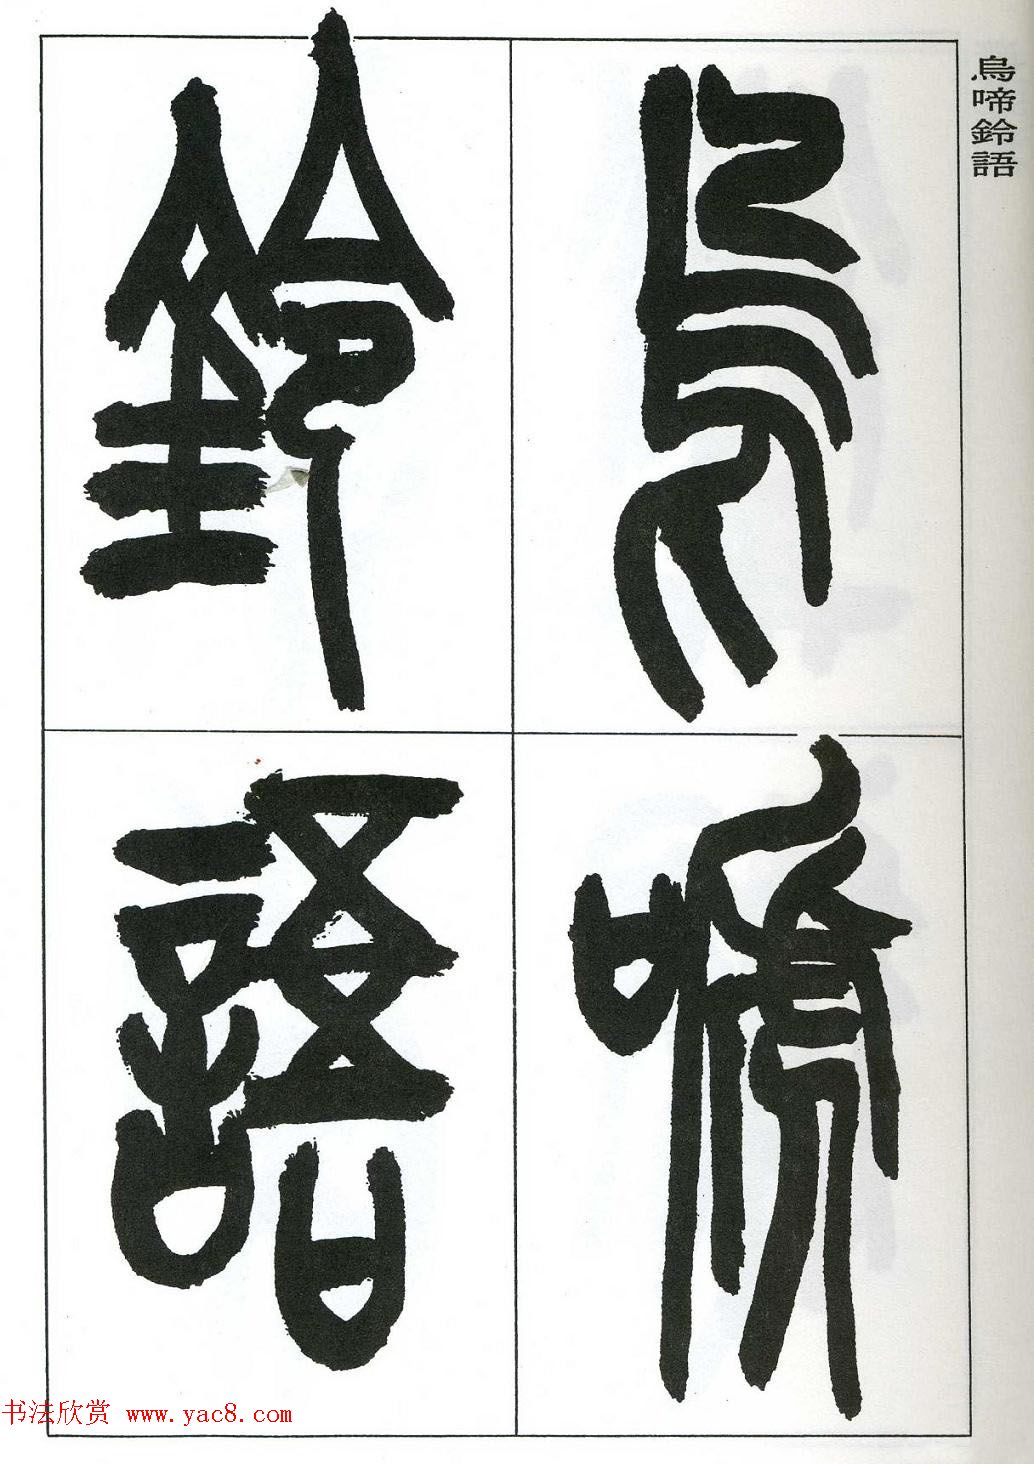 鳥啼鈴語
鳥啼
鈴語
书法欣赏 www.yac8.com